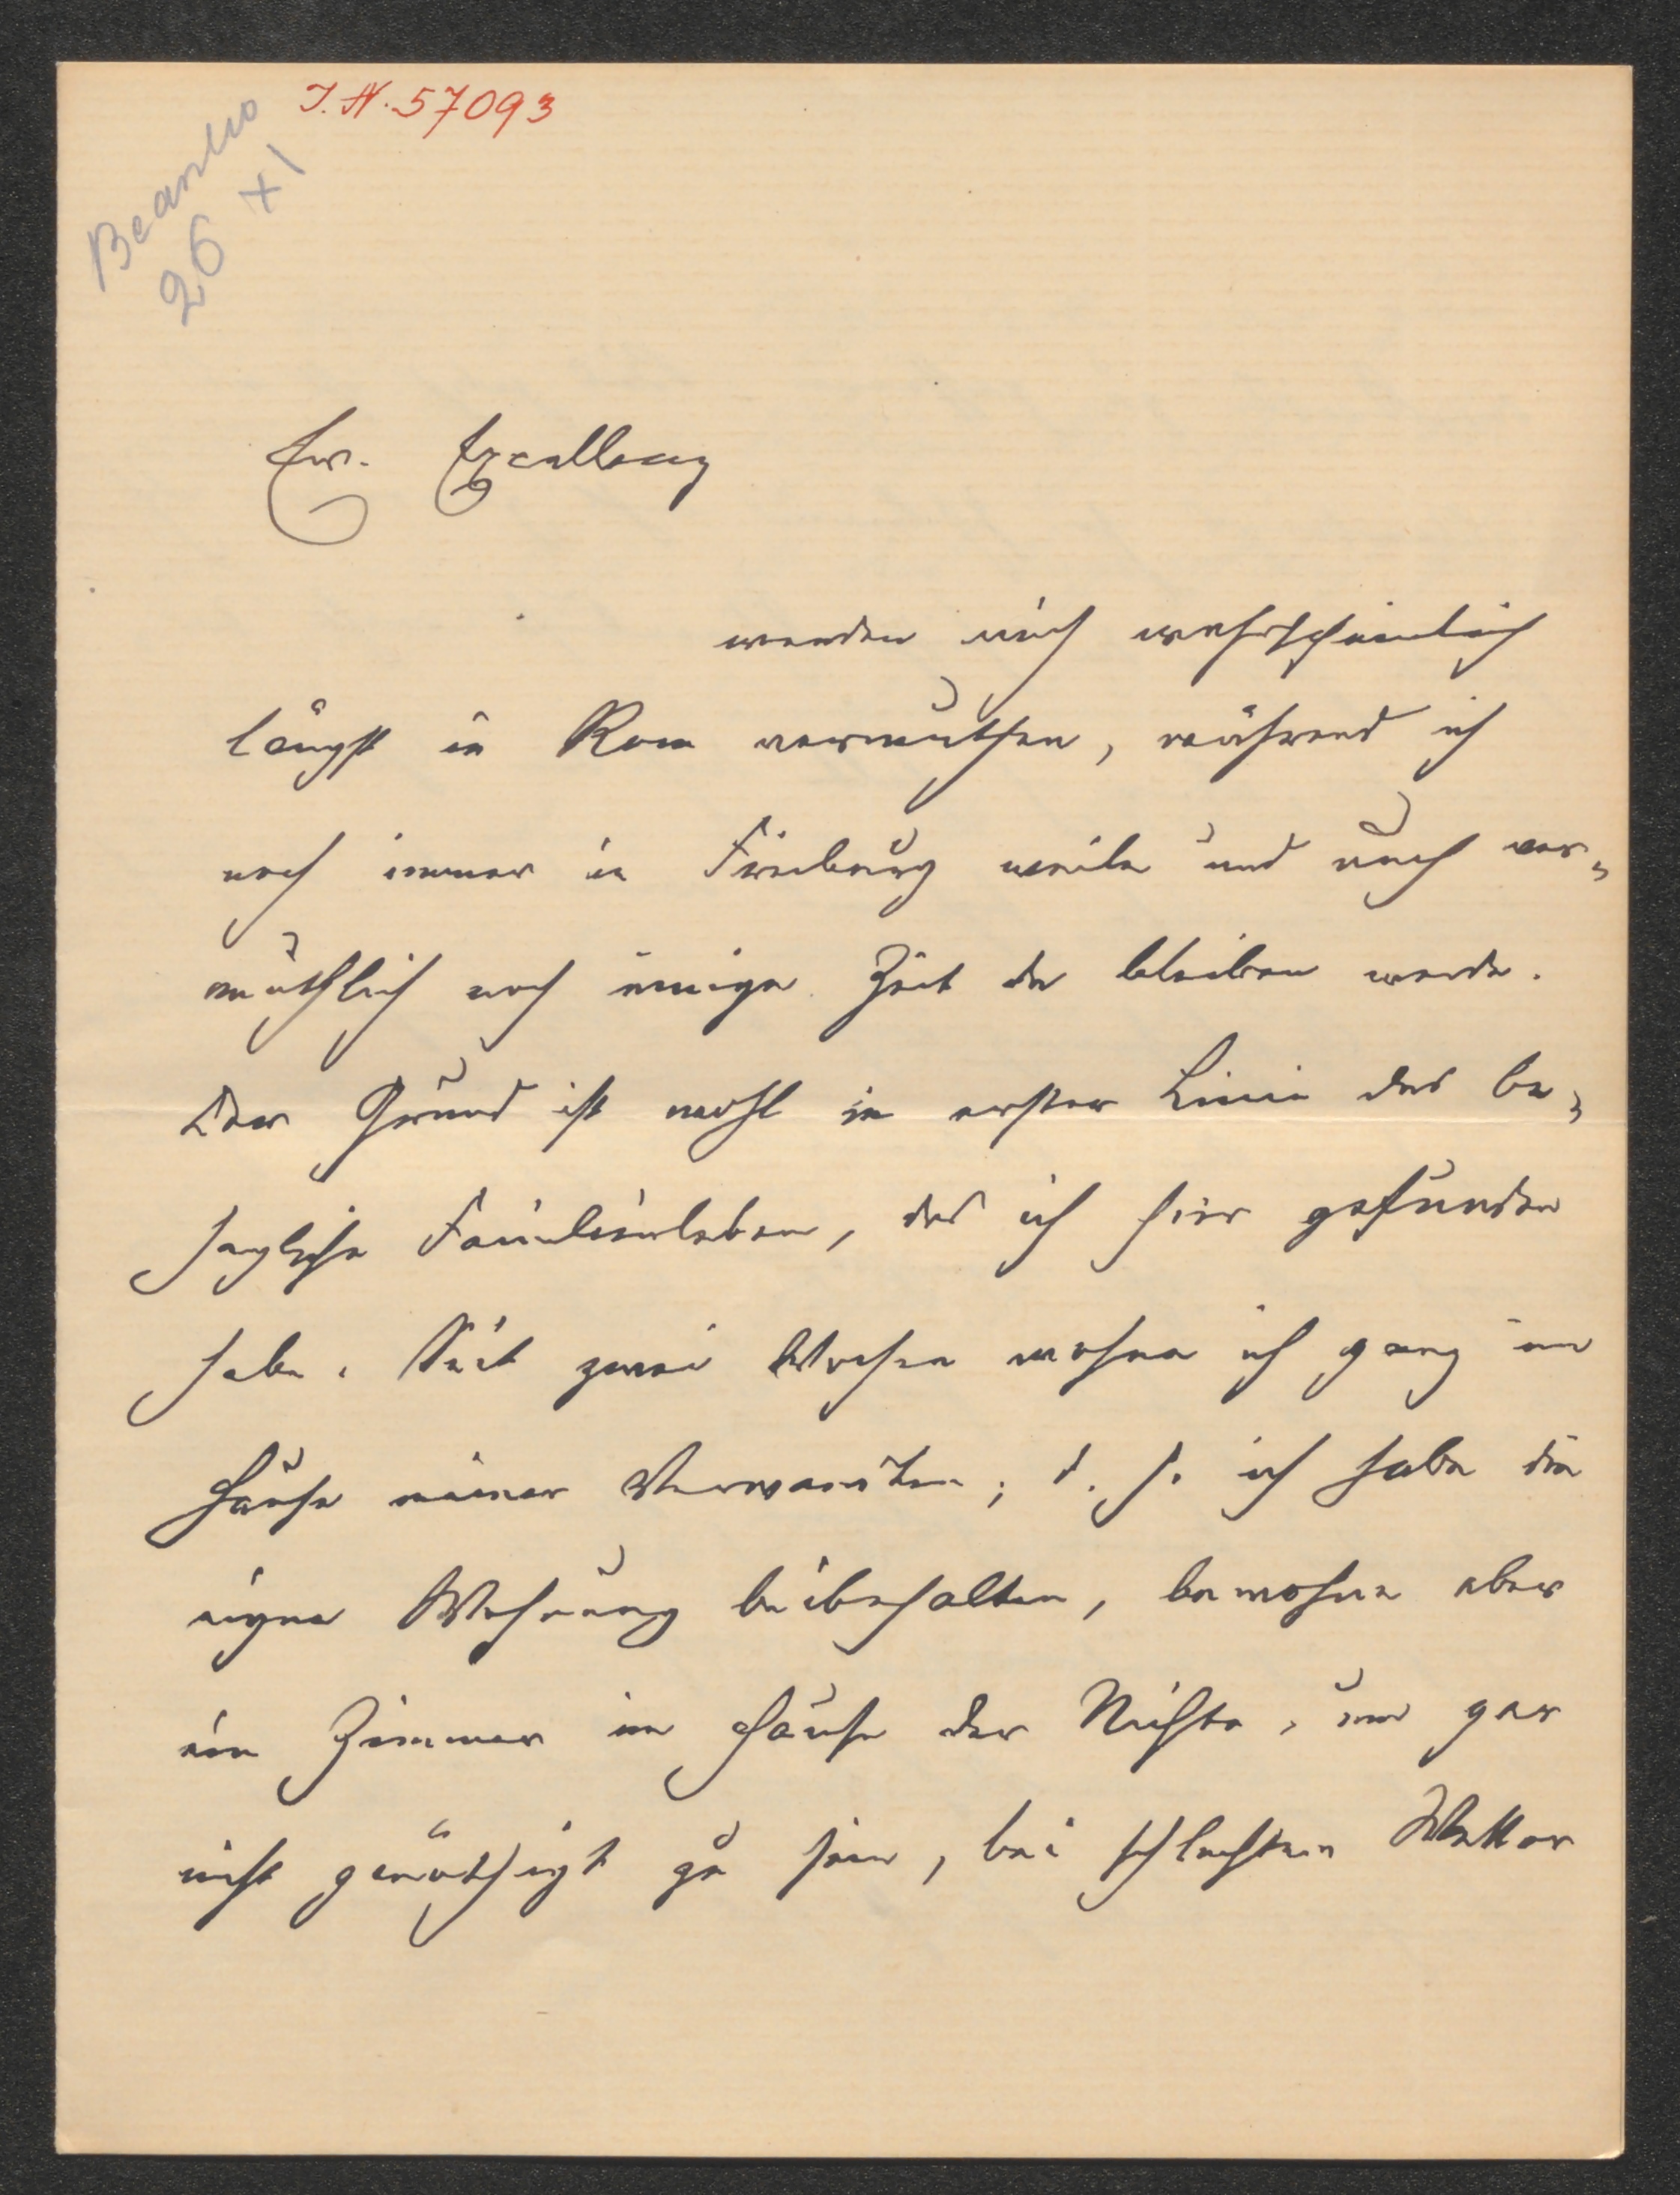 I.N. 57093
Beantw
26 XI
Ew. Excellenz
werden mich wahrscheinlich
längst in Rom vermuthen, während ich
noch immer in Freiburg weile und auch ver-
muthlich noch einige Zeit da bleiben werde.
Der Grund ist wohl in erster Linie das be-
hagliche Familienleben, das ich hier gefunden
habe. Seit zwei Wochen wohne ich ganz im
Hause meiner Verwandten; d. h. ich habe die
eigne Wohnung beibehalten, bewohne aber
ein Zimmer im Hause der Nichte, um gar
nicht genöthigt zu sein, bei schlechtem Wetter